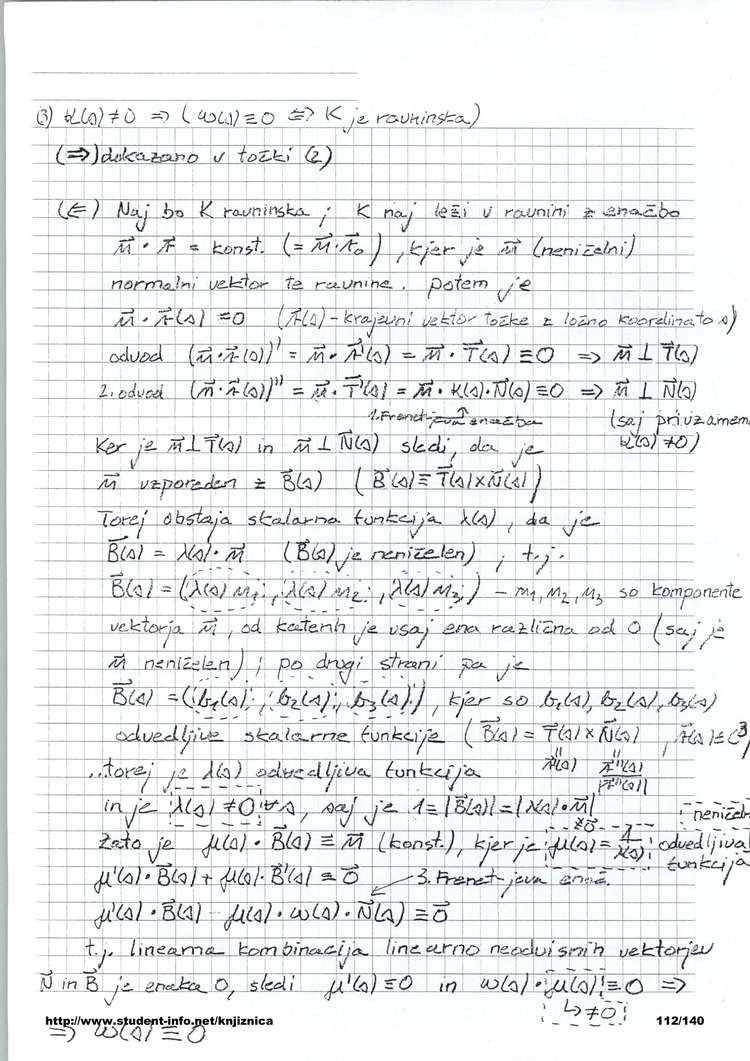 (3) κ(s)≠0 ⇒ ( ω(s)≡0 ⇔ K je ravninska)
(⇒) dokazano v točki (2)
(⇐) Naj bo K ravninska ; K naj leži v ravnini z enačbo
n⃗ • r⃗ = konst. (= n⃗•r⃗₀), kjer je n⃗ (neničelni)
normalni vektor te ravnine. potem je
n⃗ • r⃗(s) ≡0 (r⃗(s) - krajevni vektor točke z ločno koordinato s)
odvod (n⃗•r⃗(s))' = n⃗ • r⃗'(s) = n⃗ • T⃗(s) ≡0 ⇒ n⃗ ⊥ T⃗(s)
2. odvod (n⃗•r⃗(s))'' = n⃗• T⃗'(s) = n⃗• κ(s)•N⃗(s) ≡0 ⇒ n⃗ ⊥ N⃗(s)
1. Frenet-java enačba (saj privzamem
κ(s) ≠0)
Ker je n⃗⊥T⃗(s) in n⃗⊥N⃗(s) sledi, da je
n⃗ vzporeden z B⃗(s) (B⃗(s)≡T⃗(s)×N⃗(s))
Torej obstaja skalarna funkcija λ(s), da je
B⃗(s) = λ(s)•n⃗ (B⃗(s) je neničelen) , t.j.
B⃗(s) = (λ(s) n₁, λ(s) n₂, λ(s) n₃) - n₁, n₂, n₃ so komponente
vektorja n⃗, od katerih je vsaj ena različna od 0 (saj je
n⃗ neničelen) ; po drugi strani pa je
B⃗(s) =(b₁(s), b₂(s), b₃(s)), kjer so b₁(s), b₂(s), b₃(s)
odvedljive skalarne funkcije (B⃗(s) = T⃗(s)×N⃗(s) , r⃗(s)∈C³)
r⃗'(s) r⃗''(s)/|r⃗''(s)|
..torej je λ(s) odvedljiva funkcija
in je λ(s) ≠0 ∀s, saj je 1≡|B⃗(s)|=|λ(s)•n⃗|
≠0 neničeln
zato je μ(s) • B⃗(s) ≡ n⃗ (konst.), kjer je μ(s) = 1/λ(s) odvedljiva
funkcija
μ'(s)•B⃗(s) + μ(s)•B⃗'(s) ≡ 0⃗ 3. Frenet-jeva enač.
μ'(s) • B⃗(s) - μ(s) • ω(s) • N⃗(s) ≡ 0⃗
t.j. linearna kombinacija linearno neodvisnih vektorjev
N⃗ in B⃗ je enaka 0, sledi μ'(s) ≡0 in ω(s)•μ(s) ≡0 ⇒
↳ ≠0
http://www.student-info.net/knjiznica 112/140
⇒ ω(s) ≡ 0